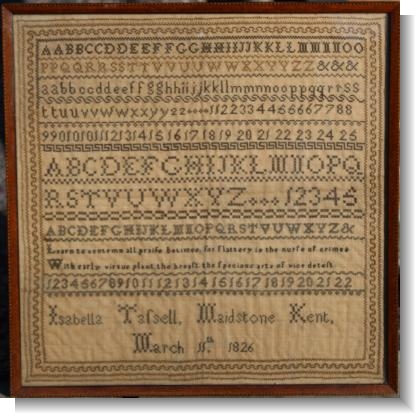 AABBCCDDEEFFGGHHIIJJKKLLMMNNOO
PPQQRRSSTTVVUUWWXXYYZZ&&&
aabbccddeeffgghhiijjkkllmmnnooppqqrrss
ttuuvvwwxxyyzz 112233445566778
99 10 10 11 12 13 14 15 16 17 18 19 20 21 22 23 24 25
ABCDEFGHIJKLMNOPQ
RSTVUWXYZ 12345
ABCDEFGHIJKLMNOPQRSTVUWXYZ&
Learn to contemn all praise betimes, for flattery is the nurse of crimes
With early virtue plant the breast the specious arts of vice detest
12345678910 11 12 13 14 15 16 17 18 19 20 21 22
Isabella Taſsell, Maidstone Kent,
March 11th 1826